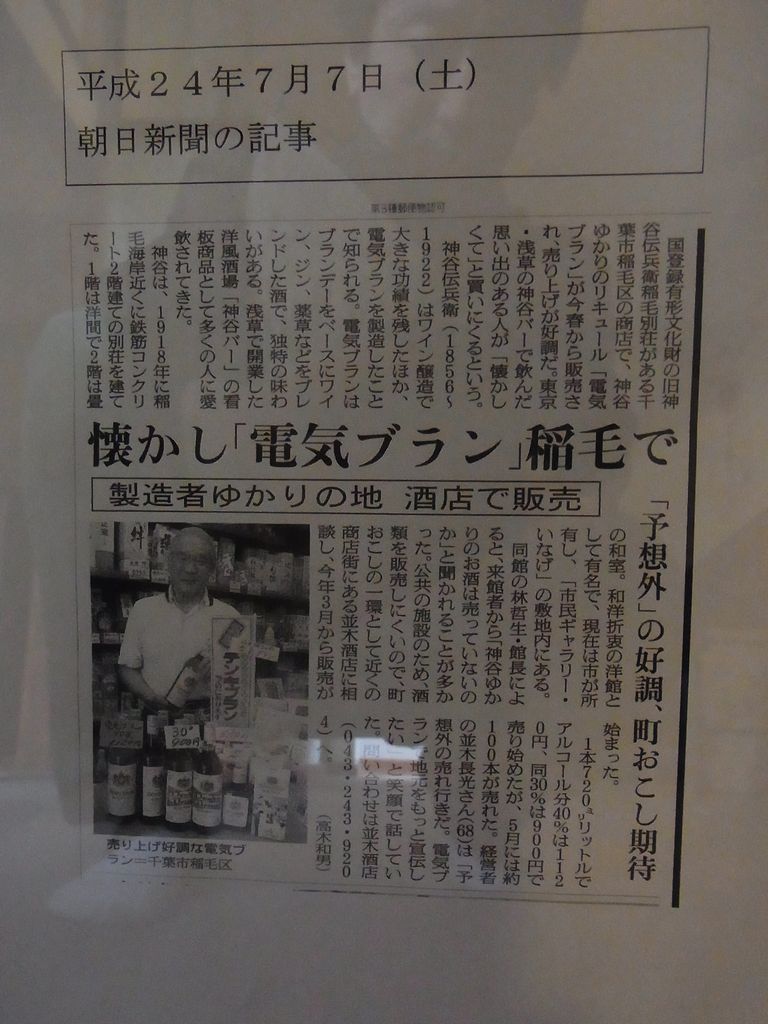 平成24年7月7日(土)
朝日新聞の記事
第3種郵便物認可
懐かし「電気ブラン」稲毛で
製造者ゆかりの地 酒店で販売
「予想外」の好調、町おこし期待
国登録有形文化財の旧神
谷伝兵衛稲毛別荘がある千
葉市稲毛区の商店で、神谷
ゆかりのリキュール「電気
ブラン」が今春から販売さ
れ、売り上げが好調だ。東京
・浅草の神谷バーで飲んだ
思い出のある人が「懐かし
くて」と買いにくるという。
神谷伝兵衛(1856〜
1922)はワイン醸造で
大きな功績を残したほか、
電気ブランを製造したこと
で知られる。電気ブランは
ブランデーをベースにワイ
ン、ジン、薬草などをブレ
ンドした酒で、独特の味わ
いがある。浅草で開業した
洋風酒場「神谷バー」の看
板商品として多くの人に愛
飲されてきた。
神谷は、1918年に稲
毛海岸近くに鉄筋コンクリ
ート2階建ての別荘を建て
た。1階は洋間で2階は畳
の和室。和洋折衷の洋館と
して有名で、現在は市が所
有し、「市民ギャラリー・
いなげ」の敷地内にある。
同館の林哲生・館長によ
ると、来館者から「神谷ゆか
りのお酒は売っていないの
か」と聞かれることが多か
った。公共の施設のため、酒
類を販売しにくいので、町
おこしの一環として近くの
商店街にある並木酒店に相
談し、今年3月から販売が
始まった。
1本720ミリリットルで
アルコール分40%は112
0円、同30%は900円で
売り始めたが、5月には約
100本が売れた。経営者
の並木長光さん(68)は「予
想外の売れ行きだ。電気ブ
ランで地元をもっと宣伝し
たい」と笑顔で話してい
た。問い合わせは並木酒店
(043・243・920
4)へ。 (高木和男)
デンキブラン
30°
900円
売り上げ好調な電気ブ
ラン=千葉市稲毛区